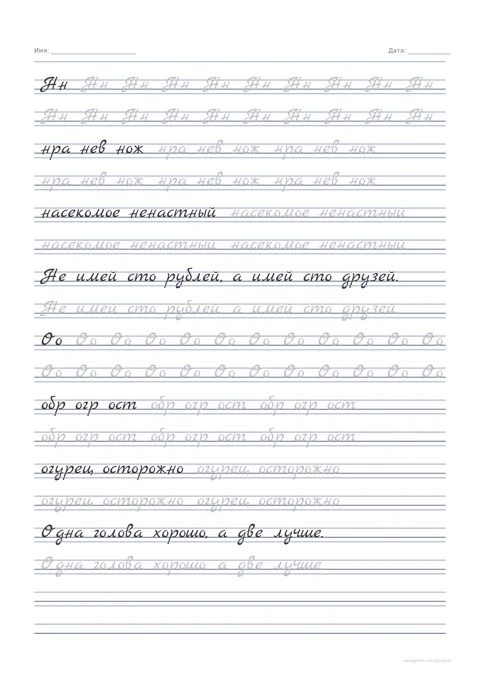 Имя: ____________ Дата: ____________
Нн Нн Нн Нн Нн Нн Нн Нн Нн Нн
Нн Нн Нн Нн Нн Нн Нн Нн Нн Нн
нра нев нож нра нев нож нра нев нож
нра нев нож нра нев нож нра нев нож
насекомое ненастный насекомое ненастный
насекомое ненастный насекомое ненастный
Не имей сто рублей, а имей сто друзей.
Не имей сто рублей а имей сто друзей
Оо Оо Оо Оо Оо Оо Оо Оо Оо Оо Оо Оо
Оо Оо Оо Оо Оо Оо Оо Оо Оо Оо Оо Оо
обр огр ост обр огр ост обр огр ост
обр огр ост обр огр ост обр огр ост
огурец осторожно огурец осторожно
огурец осторожно огурец осторожно
Одна голова хорошо, а две лучше.
Одна голова хорошо а две лучше